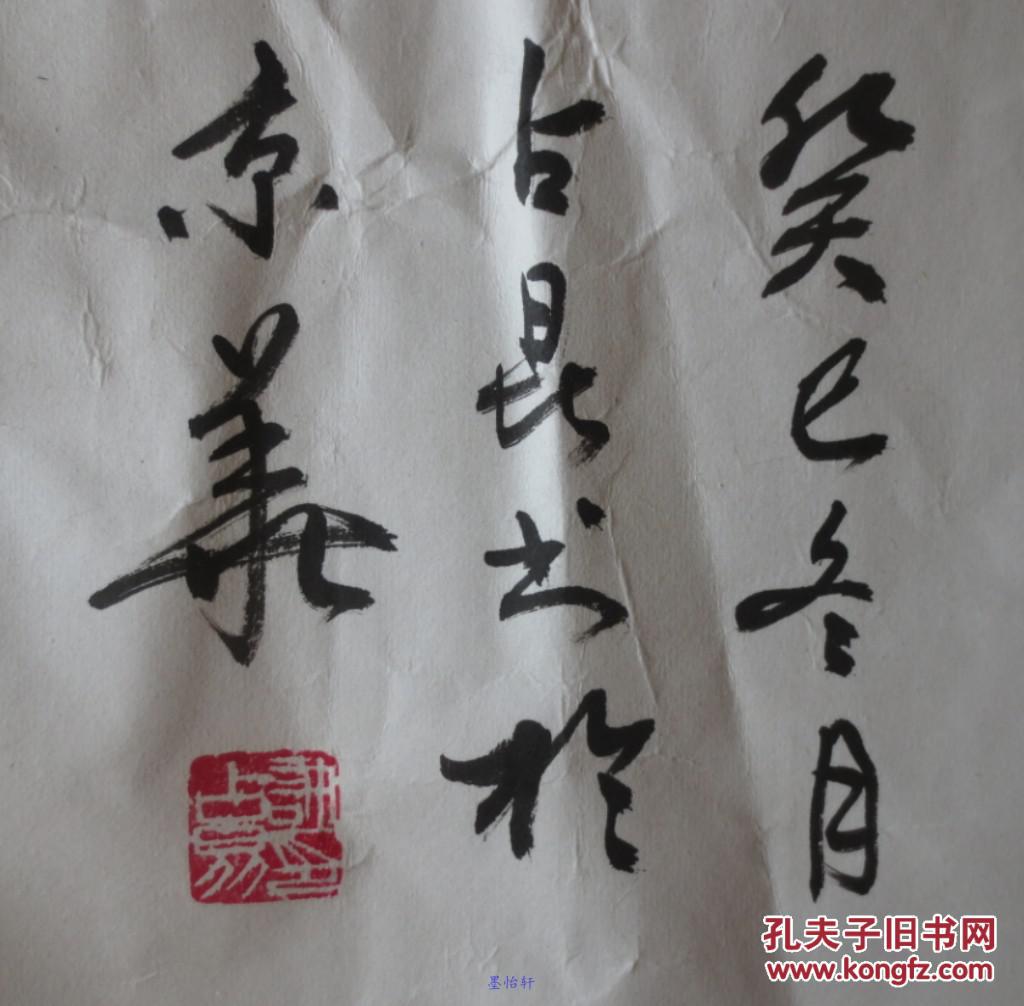 癸巳冬月
占昆书於
京華
孔夫子旧书网
www.kongfz.com
墨怡轩